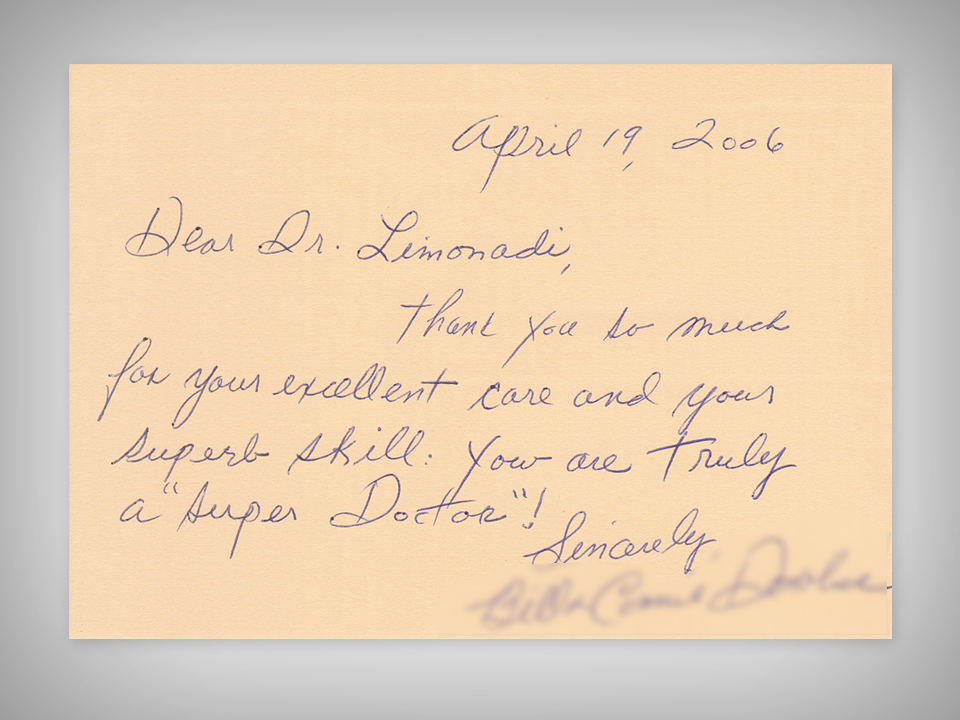 April 19, 2006
Dear Dr. Limonadi,
Thank you so much
for your excellent care and your
superb skill. You are truly
a "Super Doctor"!
Sincerely